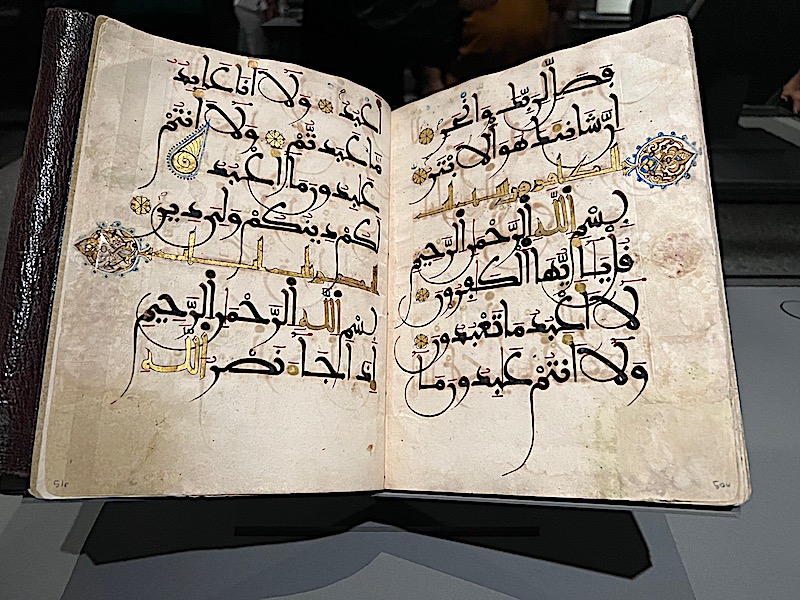 فَصَلِّ لِرَبِّكَ وَانْحَرْ
إِنَّ شَانِئَكَ هُوَ ٱلَابْتَرُ
الكفرون ست
بِسْمِ اللَّهِ الرَّحْمَٰنِ الرَّحِيمِ
قُلْ يَٰأَيُّهَا ٱلْكَٰفِرُونَ
لَا أَعْبُدُ مَا تَعْبُدُونَ
وَلَا أَنتُمْ عَٰبِدُونَ مَا
أَعْبُدُ وَلَا أَنَا عَابِدٌ
مَا عَبَدتُّمْ وَلَا أَنتُمْ
عَٰبِدُونَ مَا أَعْبُدُ
لَكُمْ دِينُكُمْ وَلِيَ دِينِ
النصر
بِسْمِ اللَّهِ الرَّحْمَٰنِ الرَّحِيمِ
إِذَا جَاءَ نَصْرُ اللَّهِ